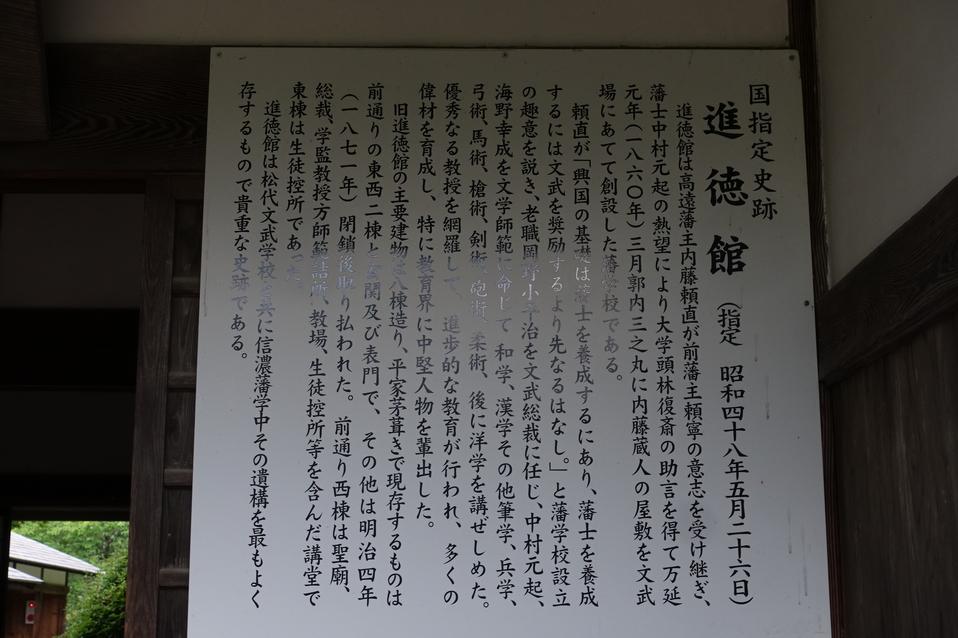 国指定史跡
進徳館（指定 昭和四十八年五月二十六日）
進徳館は高遠藩主内藤頼直が前藩主頼寧の意志を受け継ぎ、
藩士中村元起の熱望により大学頭林復斎の助言を得て万延
元年（一八六〇年）三月郭内三之丸に内藤蔵人の屋敷を文武
場にあてて創設した藩学校である。
頼直が「興国の基礎は藩士を養成するにあり、藩士を養成
するには文武を奨励するより先なるはなし。」と藩学校設立
の趣意を説き、老職岡野小平治を文武総裁に任じ、中村元起、
海野幸成を文学師範に命じて和学、漢学その他筆学、兵学、
弓術、馬術、槍術、剣術、砲術、柔術、後に洋学を講ぜしめた。
優秀なる教授を網羅して、進歩的な教育が行われ、多くの
偉材を育成し、特に教育界に中堅人物を輩出した。
旧進徳館の主要建物は八棟造り、平家茅葺きで現存するものは
前通りの東西二棟と玄関及び表門で、その他は明治四年
（一八七一年）閉鎖後取り払われた。前通り西棟は聖廟、
総裁、学監教授方師範詰所、教場、生徒控所等を含んだ講堂で
東棟は生徒控所であった。
進徳館は松代文武学校と共に信濃藩学中その遺構を最もよく
存するもので貴重な史跡である。